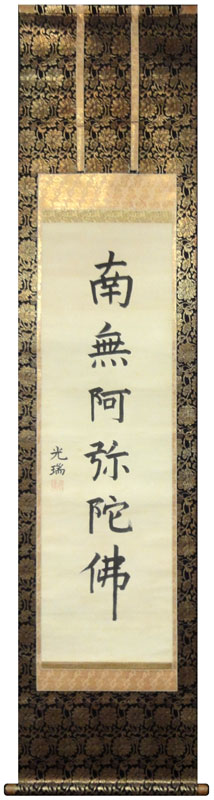 南無阿弥陀佛
光瑞